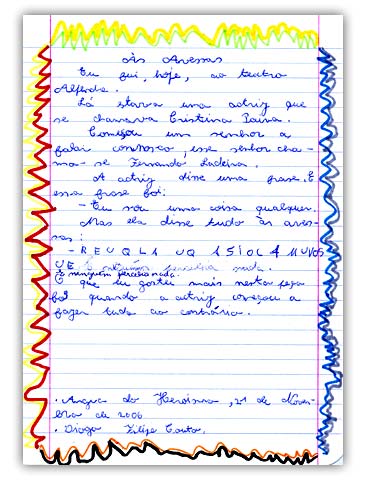 Às Avessas
Eu fui, hoje, ao teatro
Alfenda.
Lá estava uma actriz que
se chamava Cristina Paiva.
Começou um senhor a
falar connosco, esse senhor cha-
ma-se Fernando Ladeira.
A actriz disse uma frase. E
essa frase foi:
- Eu sou uma coisa qualquer.
Mas ela disse tudo às aves-
sas:
- REUQLAUQ ASIOC AMU UOS
UE. E ninguém percebia nada.
E ninguém percebia nada.
O que eu gostei mais nesta peça
foi quando a actriz começou a
fazer tudo ao contrário.
Angra do Heroísmo, 21 de Novem-
bro de 2006
Diogo Filipe Couto.